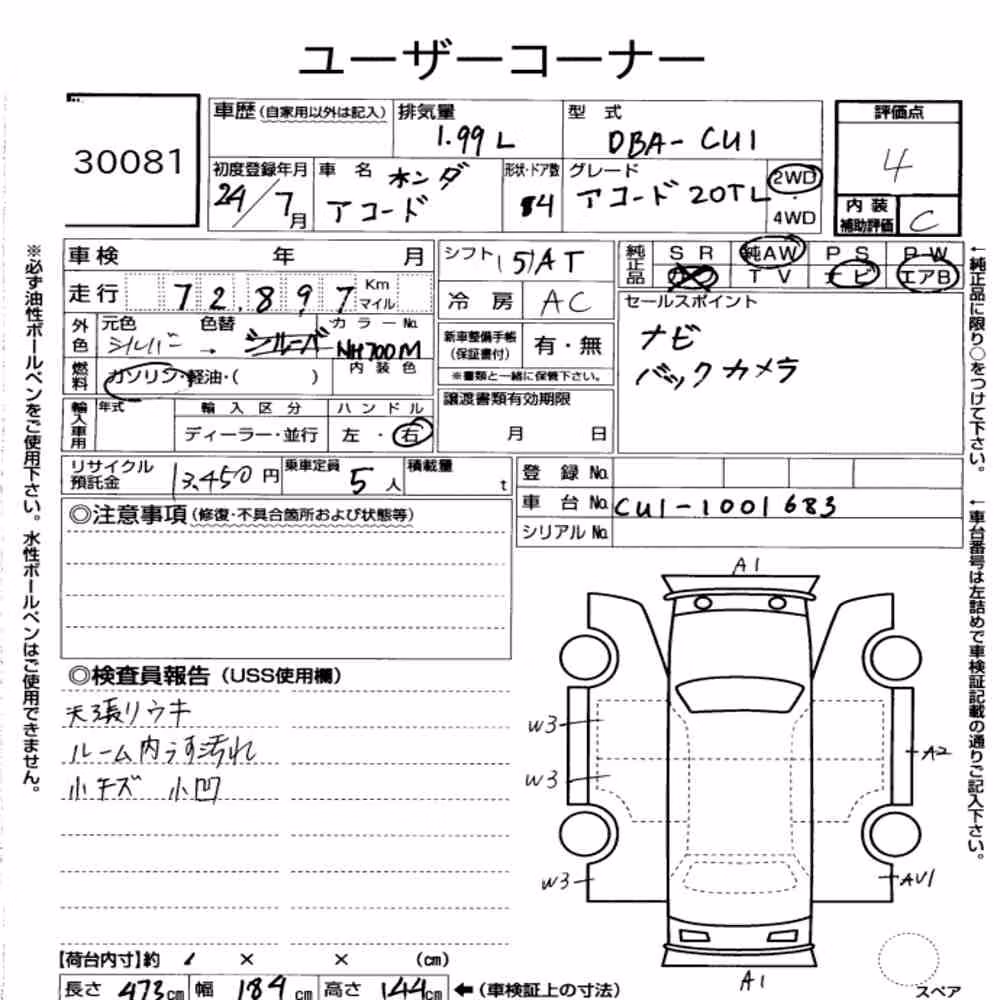 ユーザーコーナー
30081
車歴 (自家用以外は記入)
排気量
1.99 L
型式
DBA-CU1
評価点
4
内装補助評価
C
初度登録年月
24/7月
車名
ホンダ
アコード
形状・ドア数
4
グレード
アコード 20TL
2WD
4WD
車検 年 月
走行 72,897 Km マイル
外色
元色
シルバー
→
色替
シルーバー
カラーNo.
NH700M
燃料
ガソリン・軽油・( )
内装色
輸入車用
年式
輸入区分
ディーラー・並行
ハンドル
左・右
シフト (5)AT
冷房 AC
新車整備手帳(保証書付)
有・無
※書類と一緒に保管下さい。
譲渡書類有効期限
月 日
純正品
SR 純AW PS PW
TV ナビ エアB
セールスポイント
ナビ
バックカメラ
リサイクル預託金 13,450 円
乗車定員 5 人
積載量 t
登録No.
車台No. CU1-1001683
シリアルNo.
◎注意事項 (修復・不具合箇所および状態等)
◎検査員報告 (USS使用欄)
天張リウキ
ルーム内うす汚れ
小キズ 小凹
A1
W3
W3
W3
A2
AU1
A1
【荷台内寸】約 × × (cm)
長さ 473cm 幅 184cm 高さ 144cm ←(車検証上の寸法)
スペア
※必ず油性ボールペンをご使用下さい。水性ボールペンはご使用できません。
←純正品に限り○をつけて下さい。
←車台番号は左詰めで車検証記載の通りご記入下さい。